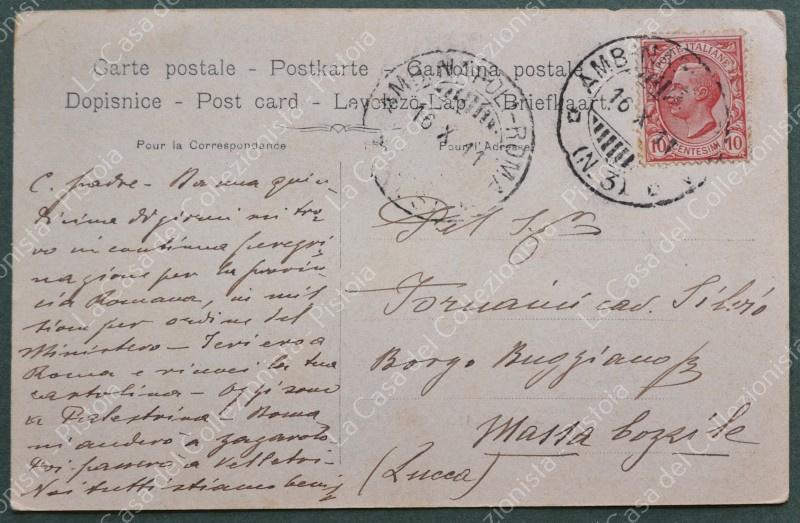 Carte postale - Postkarte - Cartolina postale
Dopisnice - Post card - Levelező-Lap - Briefkaart.
Pour la Correspondance
Pour l'Adresse
AMB. NAPOLI-ROMA
16 X 11
AMB.
16 X 11
(N. 3)
POSTE ITALIANE
10 CENTESIMI 10
C. padre - Da una quin-
dicina di giorni mi tro-
vo in continua peregri-
nazione per la provin-
cia Romana, in mis-
sione per ordine del
Ministero - Ieri ero a
Roma e ricevei la tua
cartolina - Oggi sono
a Palestrina - Doma-
ni andrò a Zagarolo
Poi passerò a Velletri -
Noi tutti stiamo bene
Del Sig.
Fornaini cav. Silvio
Borgo Buggiano
Massa Cozzile
(Lucca)
La Casa del Collezionista - Pistoia